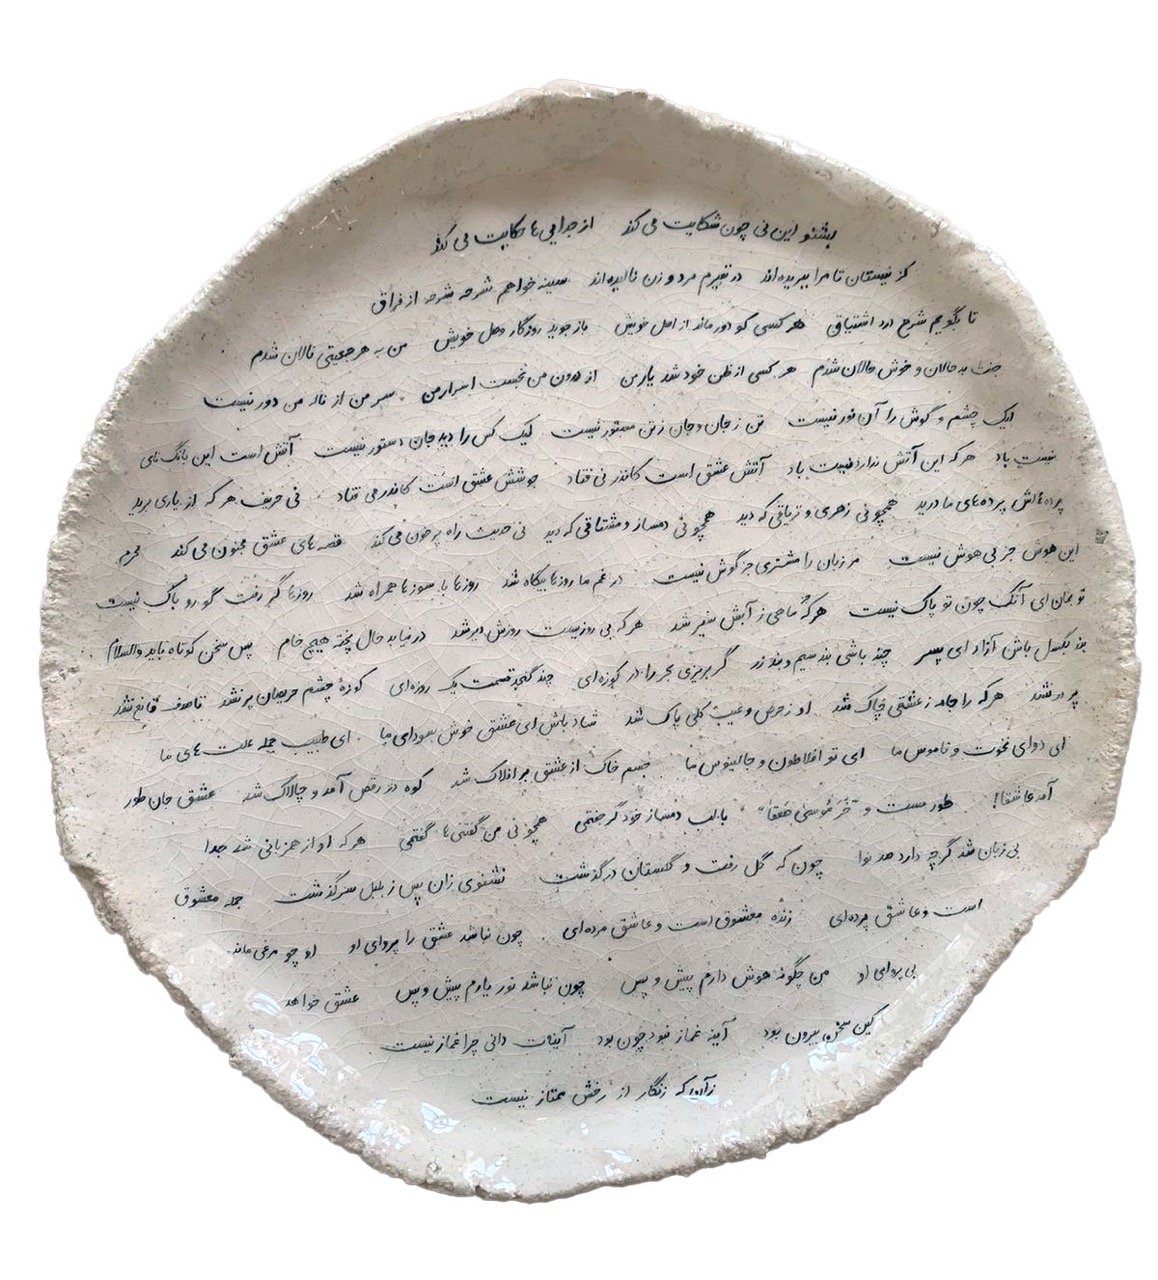 بشنو این نی چون شکایت می کند از جدایی ها حکایت می کند
کز نیستان تا مرا ببریده اند در نفیرم مرد و زن نالیده اند سینه خواهم شرحه شرحه از فراق
تا بگویم شرح درد اشتیاق هر کسی کو دور ماند از اصل خویش باز جوید روزگار وصل خویش من به هر جمعیتی نالان شدم
جفت بدحالان و خوش حالان شدم هر کسی از ظن خود شد یار من از درون من نجست اسرار من سر من از ناله من دور نیست
لیک چشم و گوش را آن نور نیست تن ز جان و جان ز تن مستور نیست لیک کس را دید جان دستور نیست آتش است این بانگ نای
نیست باد هر که این آتش ندارد نیست باد آتش عشق است کاندر نی فتاد جوشش عشق است کاندر می فتاد نی حریف هر که از یاری برید
پرده هایش پرده های ما درید همچو نی زهری و تریاقی که دید همچو نی دمساز و مشتاقی که دید نی حدیث راه پر خون می کند قصه های عشق مجنون می کند محرم
این هوش جز بی هوش نیست مر زبان را مشتری جز گوش نیست در غم ما روزها بیگاه شد روزها با سوزها همراه شد روزها گر رفت گو رو باک نیست
تو بمان ای آنک چون تو پاک نیست هر که ماهی ز آبش سیر شد هر که بی روزیست روزش دیر شد در نیابد حال پخته هیچ خام پس سخن کوتاه باید والسلام
بند بگسل باش آزاد ای پسر چند باشی بند سیم و بند زر گر بریزی بحر را در کوزه ای چند گنجد قسمت یک روزه ای کوزهٔ چشم حریصان پر نشد تا صدف قانع نشد
پر در نشد هر که را جامه ز عشقی چاک شد او ز حرص و عیب کلی پاک شد شاد باش ای عشق خوش سودای ما ای طبیب جمله علت های ما
ای دوای نخوت و ناموس ما ای تو افلاطون و جالینوس ما جسم خاک از عشق بر افلاک شد کوه در رقص آمد و چالاک شد عشق جان طور
آمد عاشقا! طور مست و "خر موسی صعقا" با لب دمساز خود گر جفتمی همچو نی من گفتنی ها گفتمی هر که او از همزبانی شد جدا
بی زبان شد گرچه دارد صد نوا چون که گل رفت و گلستان درگذشت نشنوی زان پس ز بلبل سرگذشت جمله معشوق
است و عاشق پرده ای زنده معشوق است و عاشق مرده ای چون نباشد عشق را پروای او او چو مرغی ماند
بی پروای او من چگونه هوش دارم پیش و پس چون نباشد نور یارم پیش و پس عشق خواهد
کین سخن بیرون بود آینه غماز نبود چون بود آینه ت دانی چرا غماز نیست
زآنکه زنگار از رخش ممتاز نیست